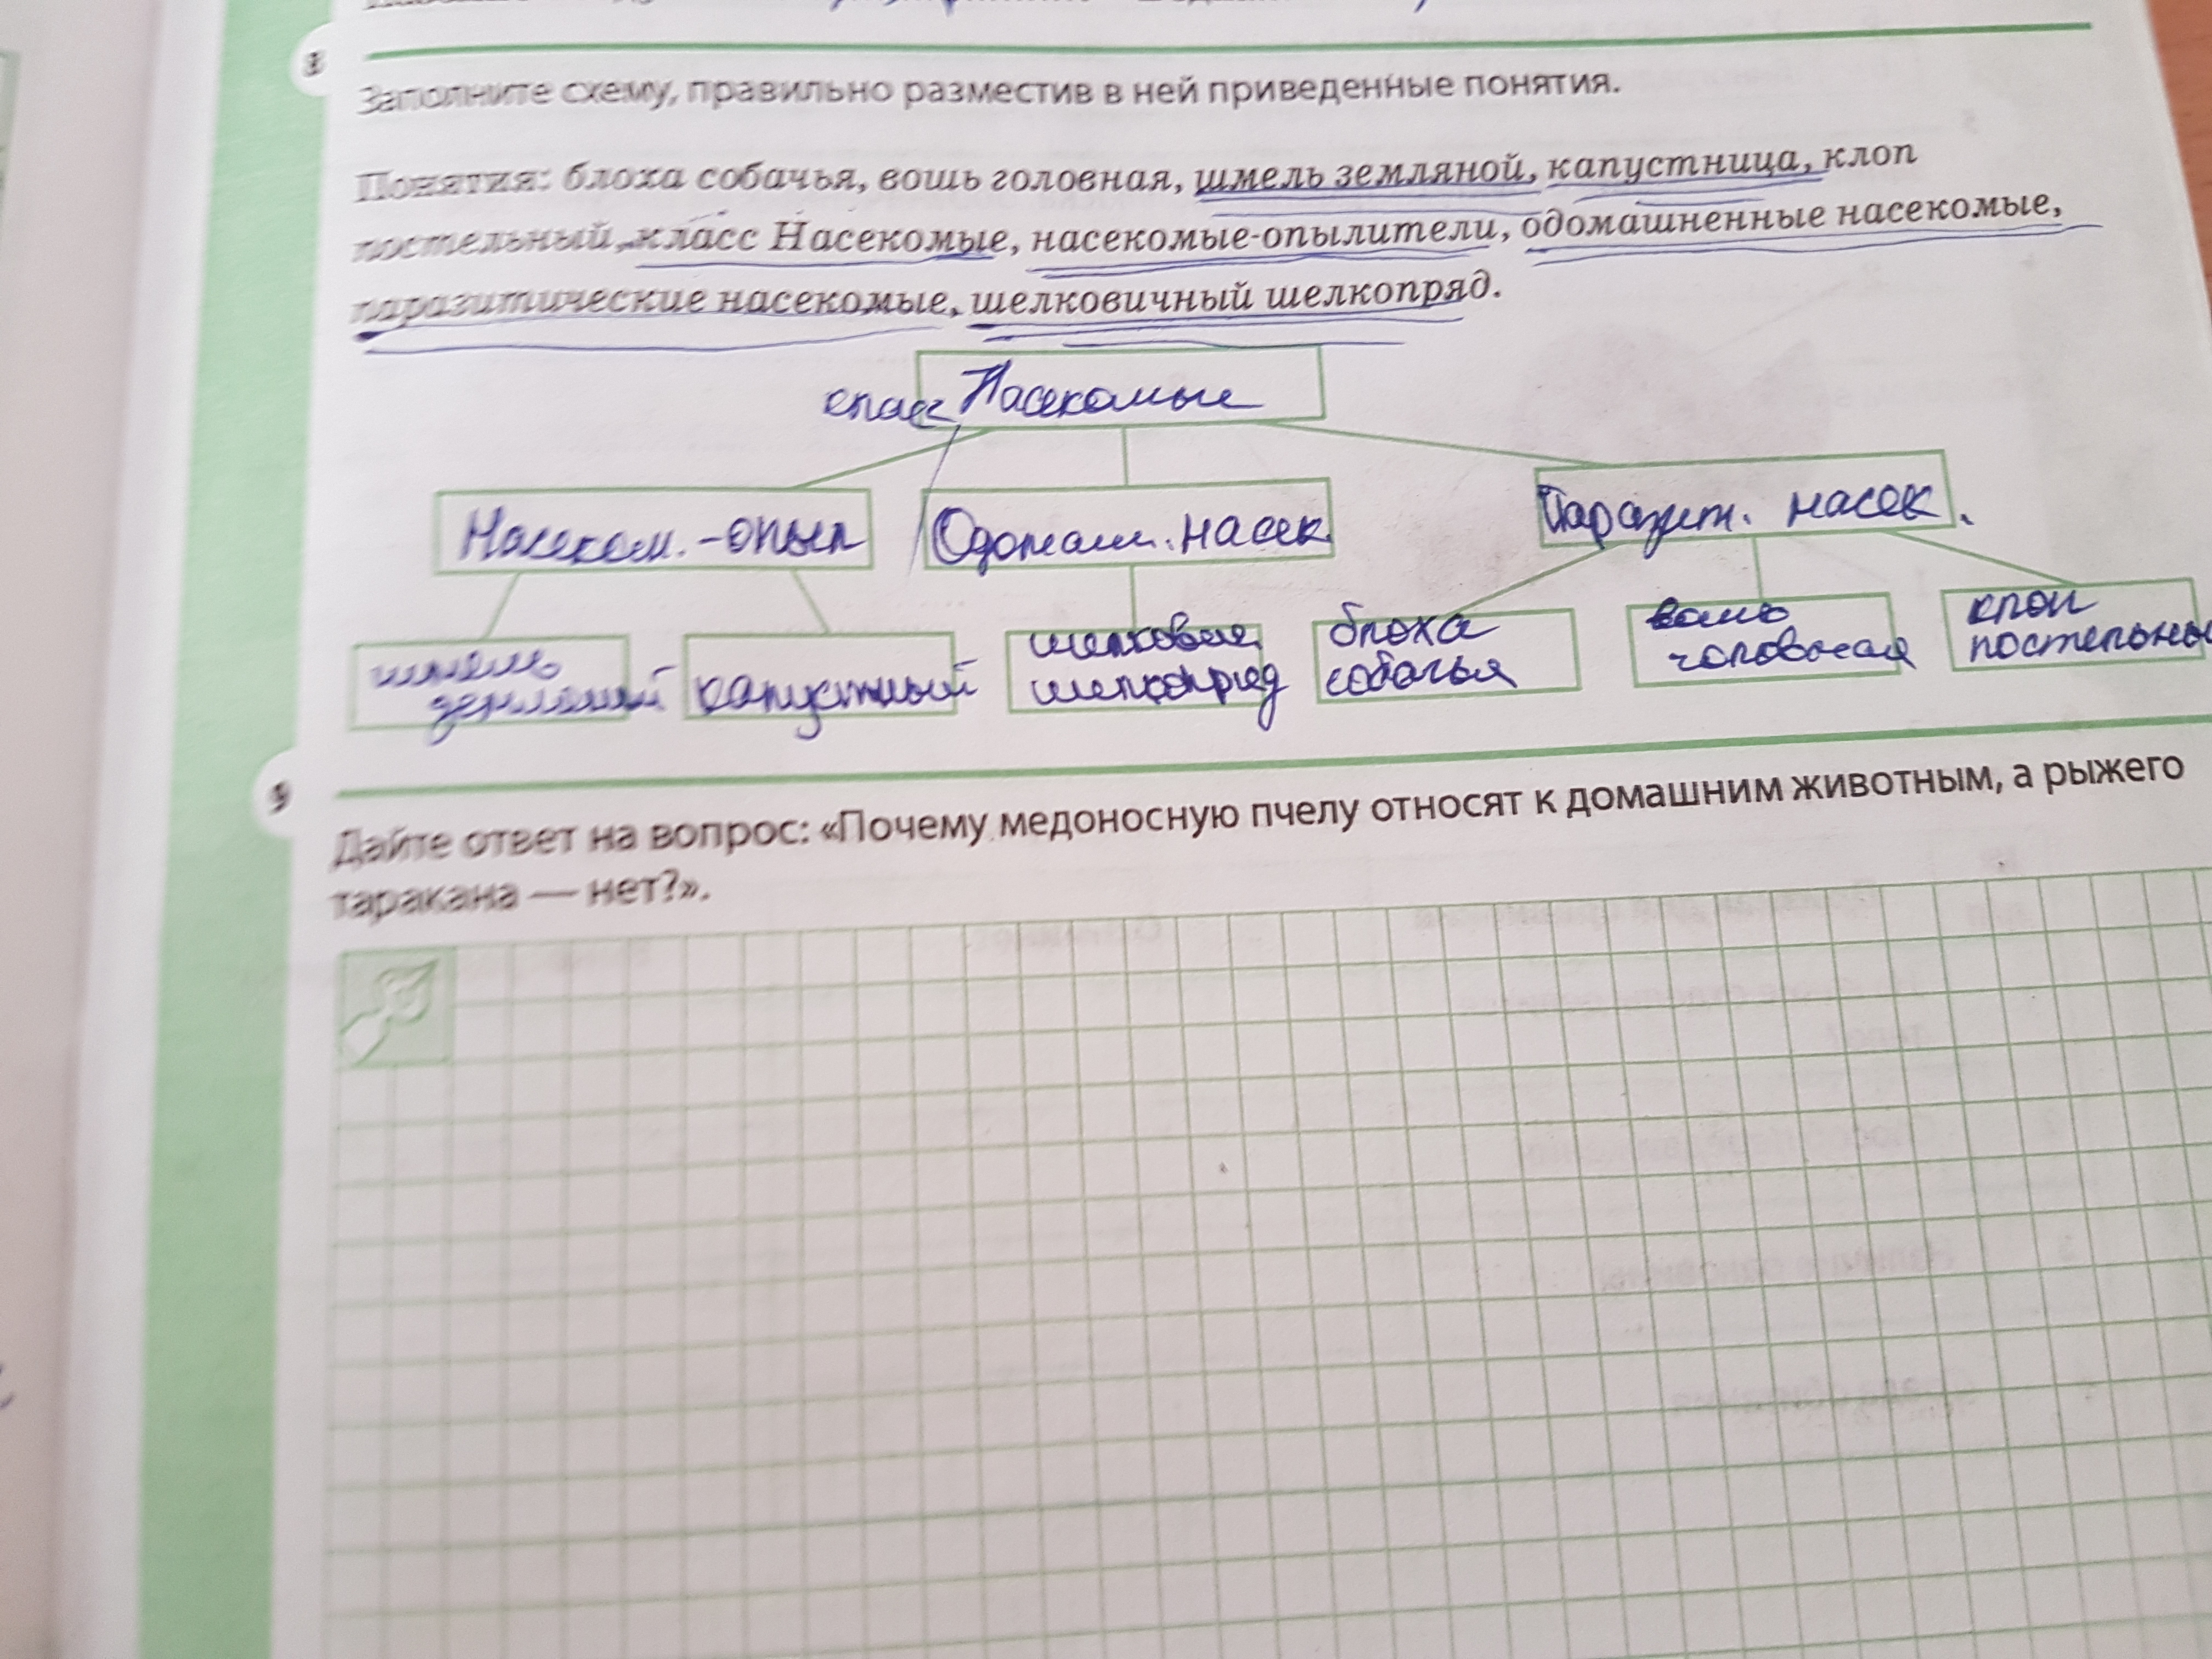 8
Заполните схему, правильно разместив в ней приведенные понятия.
Понятия: блоха собачья, вошь головная, шмель земляной, капустница, клоп
постельный, класс Насекомые, насекомые-опылители, одомашненные насекомые,
паразитические насекомые, шелковичный шелкопряд.
класс Насекомые
Насеком.-опыл
Одомаш. насек
Паразит. насек.
шмель
земляной
капустный
шелкович
шелкопряд
блоха
собачья
вошь
головная
клоп
постельны
9
Дайте ответ на вопрос: «Почему медоносную пчелу относят к домашним животным, а рыжего
таракана — нет?».